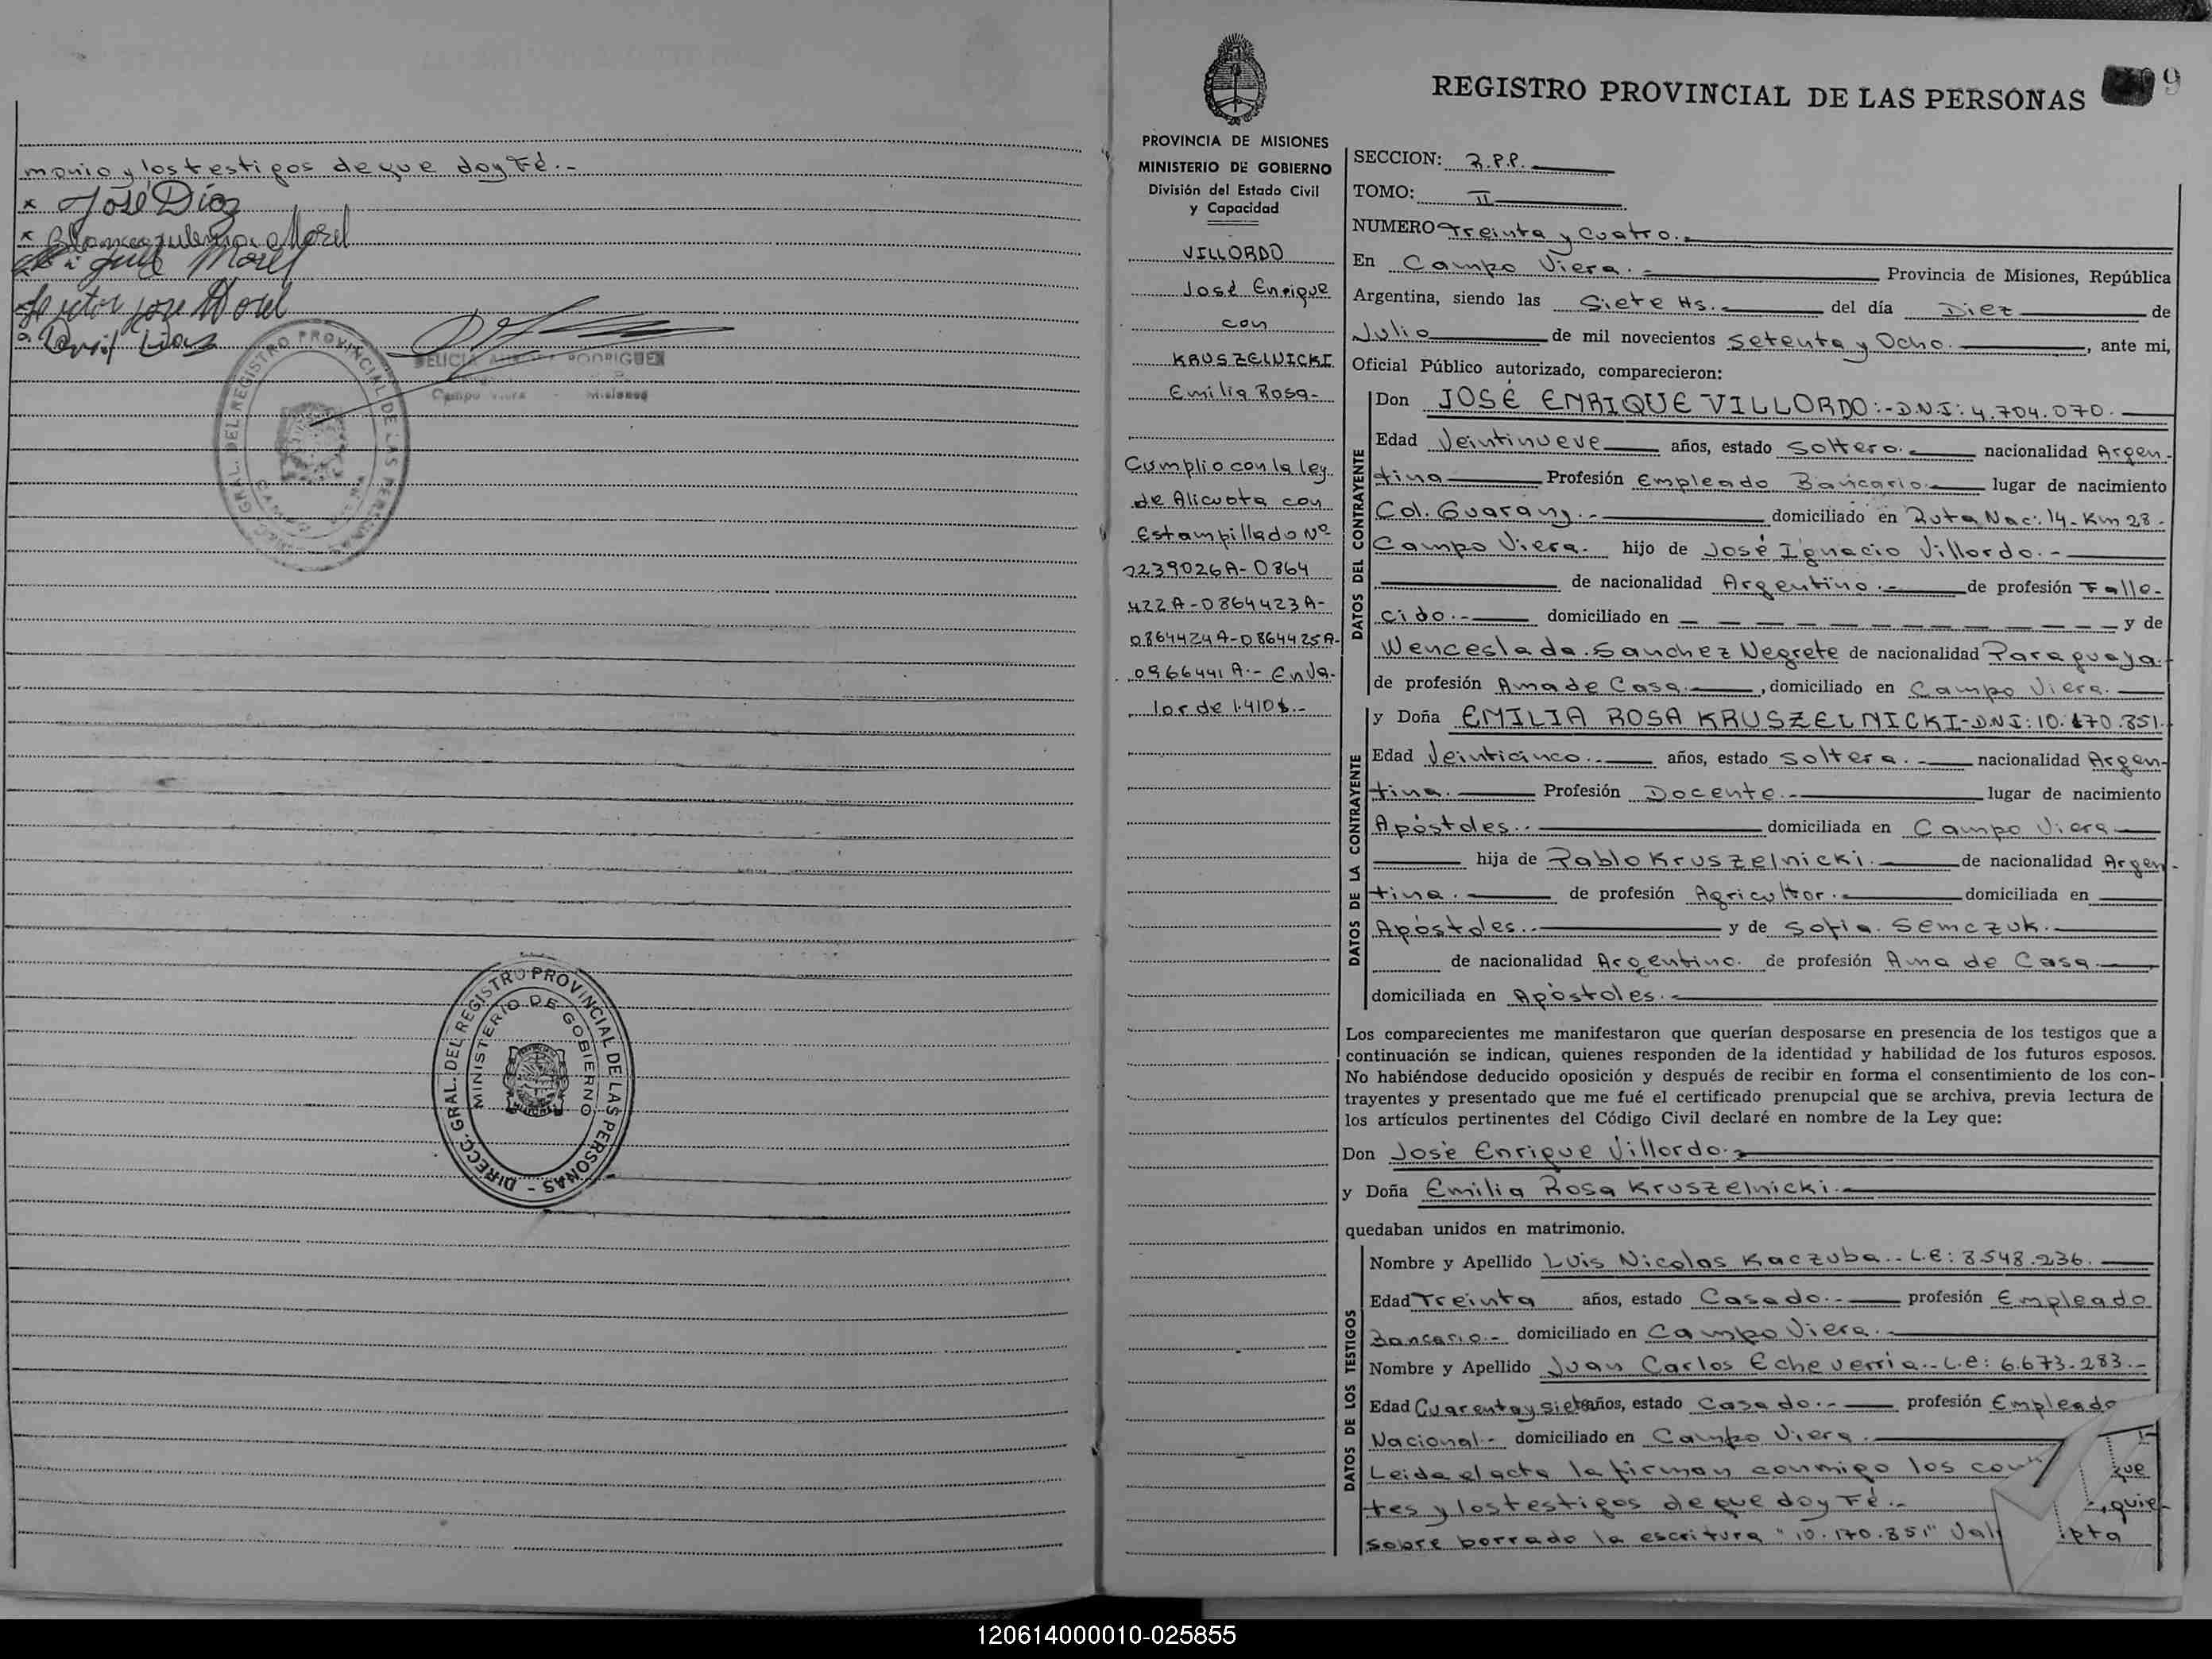 monio y los testigos de que doy Fé.-
x José Díaz
x Morel
Morel
Hector jose Morel
DIRECC. GRAL. DEL REGISTRO PROVINCIAL DE LAS PERSONAS
DELICIA AURORA RODRIGUEZ
Campo Viera - Misiones
DIRECC. GRAL. DEL REGISTRO PROVINCIAL DE LAS PERSONAS -
MINISTERIO DE GOBIERNO
PROVINCIA DE MISIONES
MINISTERIO DE GOBIERNO
División del Estado Civil
y Capacidad
VILLORDO
José Enrique
con
KRUSZELNICKI
Emilia Rosa-
Cumplio con la ley
de Alicuota con
Estampillado Nº
2239026A-0864
422A-0864423A-
0864424A-0864425A-
0966441A.- En va-
lor de 1.410$.-
REGISTRO PROVINCIAL DE LAS PERSONAS
9
SECCION: R.P.P.
TOMO: II
NUMERO Treinta y Cuatro.-
En Campo Viera.- Provincia de Misiones, República
Argentina, siendo las Siete Hs.- del día Diez de
Julio de mil novecientos Setenta y Ocho.- , ante mi,
Oficial Público autorizado, comparecieron:
DATOS DEL CONTRAYENTE
Don JOSÉ ENRIQUE VILLORDO:-D.N.I: 4.704.070.
Edad Veintinueve años, estado Soltero.- nacionalidad Argen-
tina Profesión Empleado Bancario.- lugar de nacimiento
Col. Guarany.- domiciliado en Ruta Nac: 14- Km 28-
Campo Viera. hijo de José Ignacio Villordo.-
de nacionalidad Argentino.- de profesión Falle-
cido.- domiciliado en — — — — — — — — — — — y de
Wenceslada Sanchez Negrete de nacionalidad Paraguaya.
de profesión Ama de Casa.- , domiciliado en Campo Viera.
DATOS DE LA CONTRAYENTE
y Doña EMILIA ROSA KRUSZELNICKI-D.N.I: 10.170.851.
Edad Veinticinco.- años, estado Soltera.- nacionalidad Argen-
tina. Profesión Docente.- lugar de nacimiento
Apóstoles.- domiciliada en Campo Viera
hija de Pablo Kruszelnicki. de nacionalidad Argen-
tina. de profesión Agricultor.- domiciliada en
Apóstoles.- y de Sofia Semczuk.
de nacionalidad Argentino. de profesión Ama de Casa
domiciliada en Apóstoles.-
Los comparecientes me manifestaron que querían desposarse en presencia de los testigos que a
continuación se indican, quienes responden de la identidad y habilidad de los futuros esposos.
No habiéndose deducido oposición y después de recibir en forma el consentimiento de los con-
trayentes y presentado que me fué el certificado prenupcial que se archiva, previa lectura de
los artículos pertinentes del Código Civil declaré en nombre de la Ley que:
Don José Enrique Villordo.-
y Doña Emilia Rosa Kruszelnicki.-
quedaban unidos en matrimonio.
DATOS DE LOS TESTIGOS
Nombre y Apellido Luis Nicolas Kaczuba.- L.E: 8.548.236.
Edad Treinta años, estado Casado.- profesión Empleado
Bancario.- domiciliado en Campo Viera.-
Nombre y Apellido Juan Carlos Echeverria.- L.E: 6.673.283.-
Edad Cuarenta y siete años, estado Casado.- profesión Empleado
Nacional.- domiciliado en Campo Viera.
Leida el acta la firman conmigo los
que
tes y los testigos de que doy Fé.-
, quie-
sobre borrado la escritura "10.170.851"
120614000010-025855